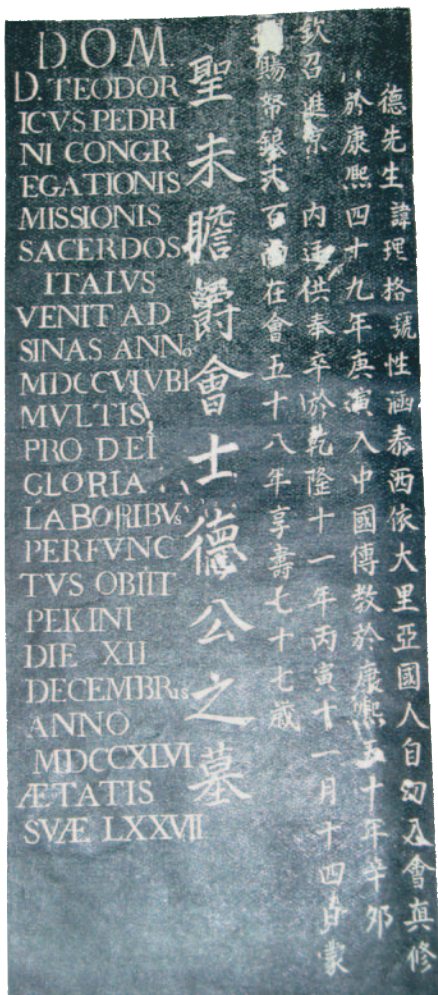 DOM.
D. TEODOR
ICVS PEDRI
NI CONGR
EGATIONIS
MISSIONIS
SACERDOS
ITALVS
VENIT AD
SINAS ANNo
MDCCVI VBI
MVLTIS
PRO DEI
GLORIA
LABORIBVs
PERFVNC
TVS OBIIT
PEKINI
DIE XII
DECEMBRis
ANNO
MDCCXLVI
ÆTATIS
SVÆ LXXVII
德先生諱理格號性涵泰西依大里亞國人自幼入會眞修
於康熙四十九年庚寅入中國傳教於康熙五十年辛卯
欽召進京內廷供奉卒於乾隆十一年丙寅十一月十四日蒙
賜帑銀百兩在會五十八年享壽七十七歲
聖未瞻爵會士德公之墓